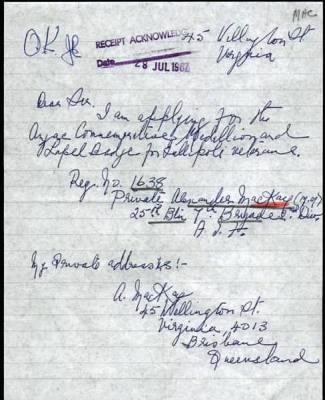 MAC
OK
RECEIPT ACKNOWLEDGED
45 Willington St
Virginia
Date 28 JUL 1967
Dear Sir.
I am applying for the
Anzac Commemorative Medallion and
Lapel Badge for Gallipoli veterans.
Reg. No. 1638
Private Alexander MacKay
25th Btn 7th Brigade Div.
A.I.F.
My Private address is:-
A. MacKay
45 Wellington St.
Virginia, 4013
Brisbane
Queensland